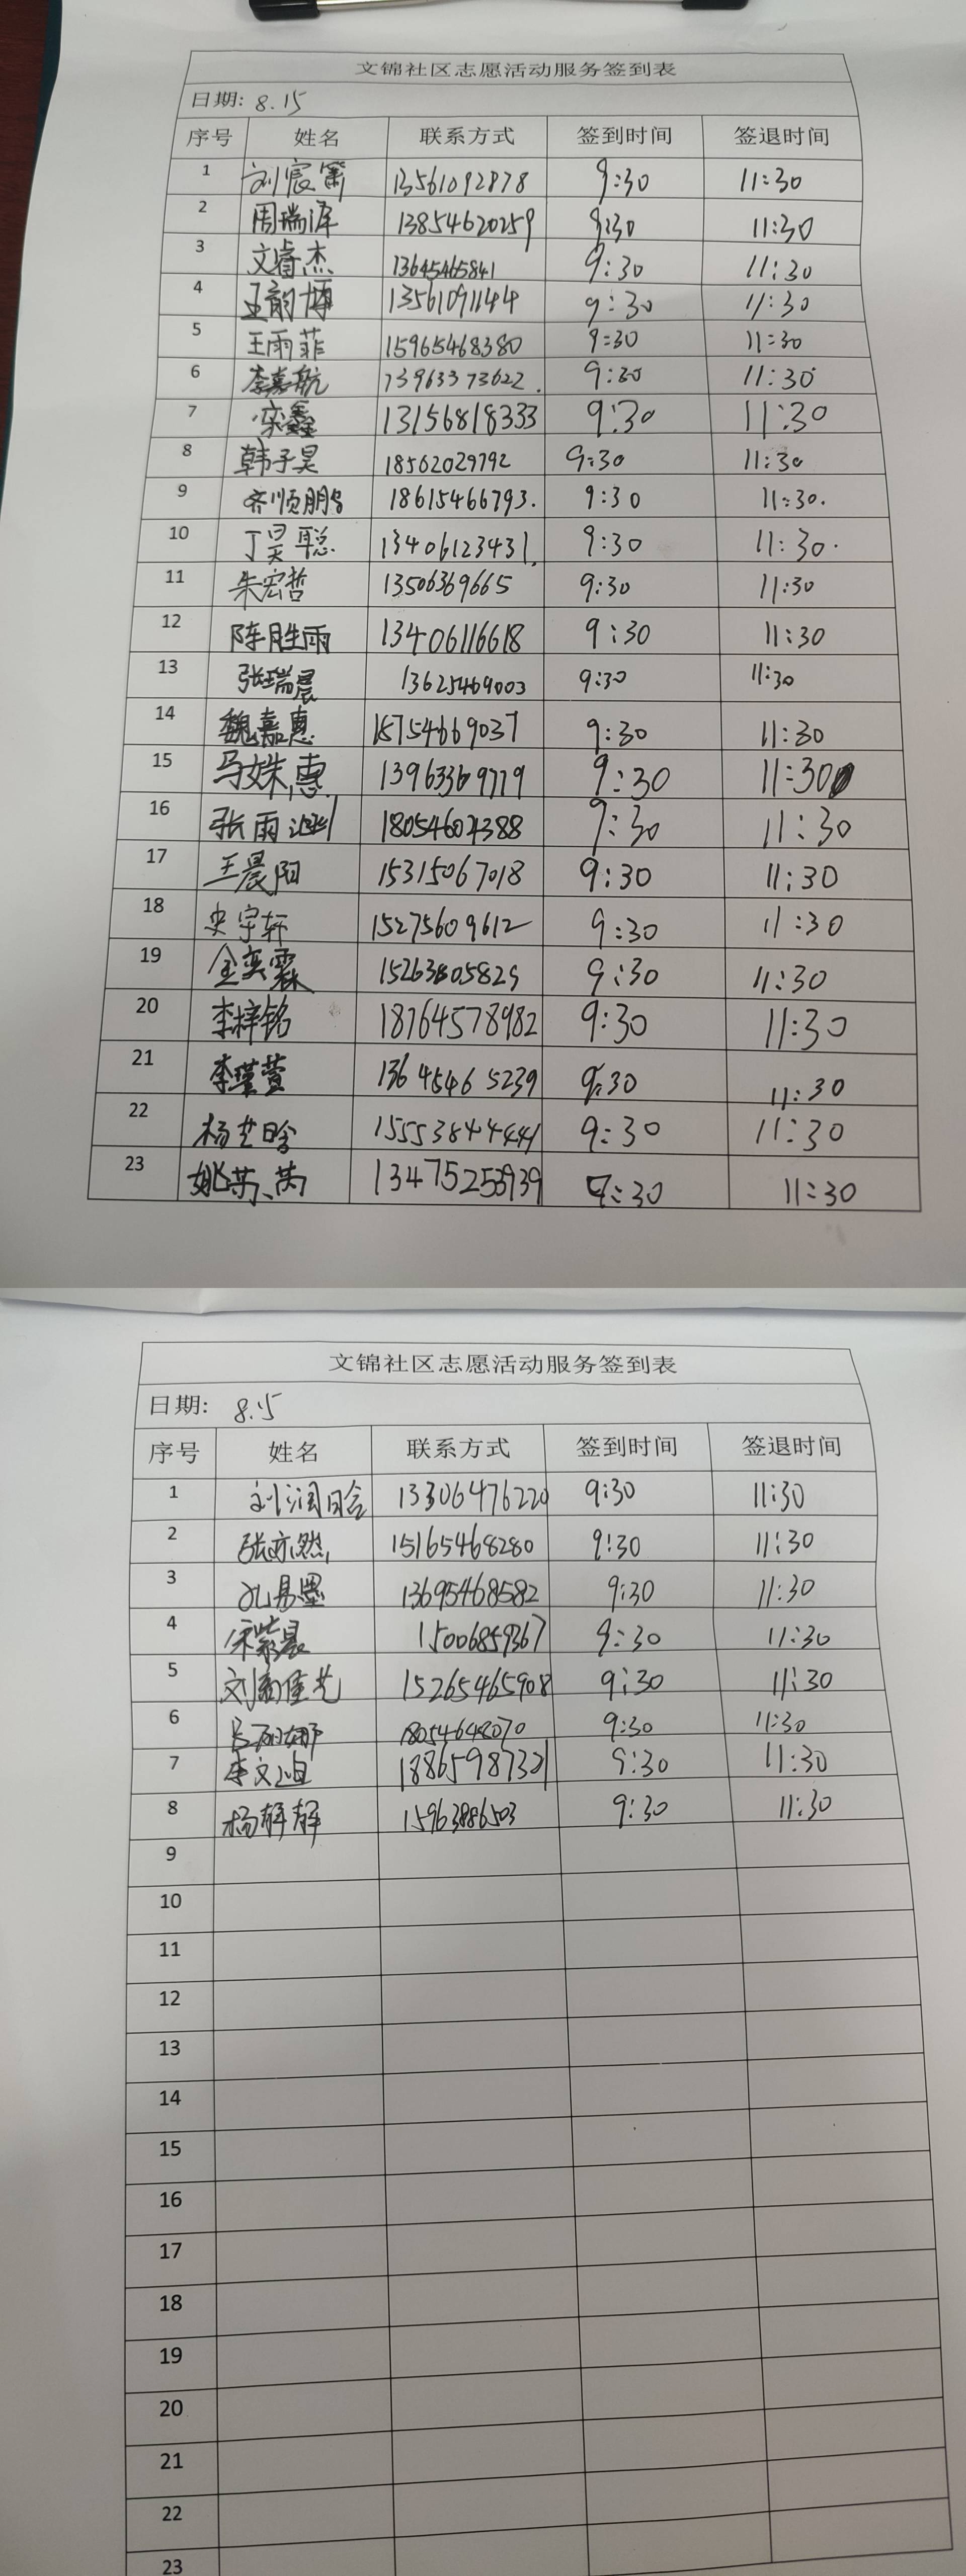 文锦社区志愿活动服务签到表
日期: 8.15
序号 姓名 联系方式 签到时间 签退时间
1 刘宸箫 13561092878 9:30 11:30
2 周瑞泽 13854620259 9:30 11:30
3 文睿杰 13645465841 9:30 11:30
4 王韵博 13561091144 9:30 11:30
5 王雨菲 15965468380 9:30 11:30
6 李嘉航 13963373622. 9:30 11:30
7 宋鑫 13156818333 9:30 11:30
8 韩子昊 18562029792 9:30 11:30
9 齐顺鹏 18615466793. 9:30 11:30.
10 丁昊聪 13406123431. 9:30 11:30.
11 朱宏哲 13506369665 9:30 11:30
12 陈胜雨 13406116618 9:30 11:30
13 张瑞晨 13625469003 9:30 11:30
14 魏嘉惠 15754669037 9:30 11:30
15 马姝惠 13963369779 9:30 11:30
16 张雨 9:30 11:30
17 王晨阳 15315067018 9:30 11:30
18 史宇轩 15275609612 9:30 11:30
19 金奕霖 9:30 11:30
20 李梓铭 18764578982 9:30 11:30
21 李瑾萱 13645465239 9:30 11:30
22 杨芷晗 15553844441 9:30 11:30
23 姚芮 9:30 11:30
文锦社区志愿活动服务签到表
日期: 8.15
序号 姓名 联系方式 签到时间 签退时间
1 刘润晗 13306476220 9:30 11:30
2 张亦然 15165468280 9:30 11:30
3 孔易墨 13695468582 9:30 11:30
4 宋紫晨 15006859367 9:30 11:30
5 15265465908 9:30 11:30
6 18054648070 9:30 11:30
7 李文 18865987321 9:30 11:30
8 杨静静 15963886503 9:30 11:30
9
10
11
12
13
14
15
16
17
18
19
20
21
22
23